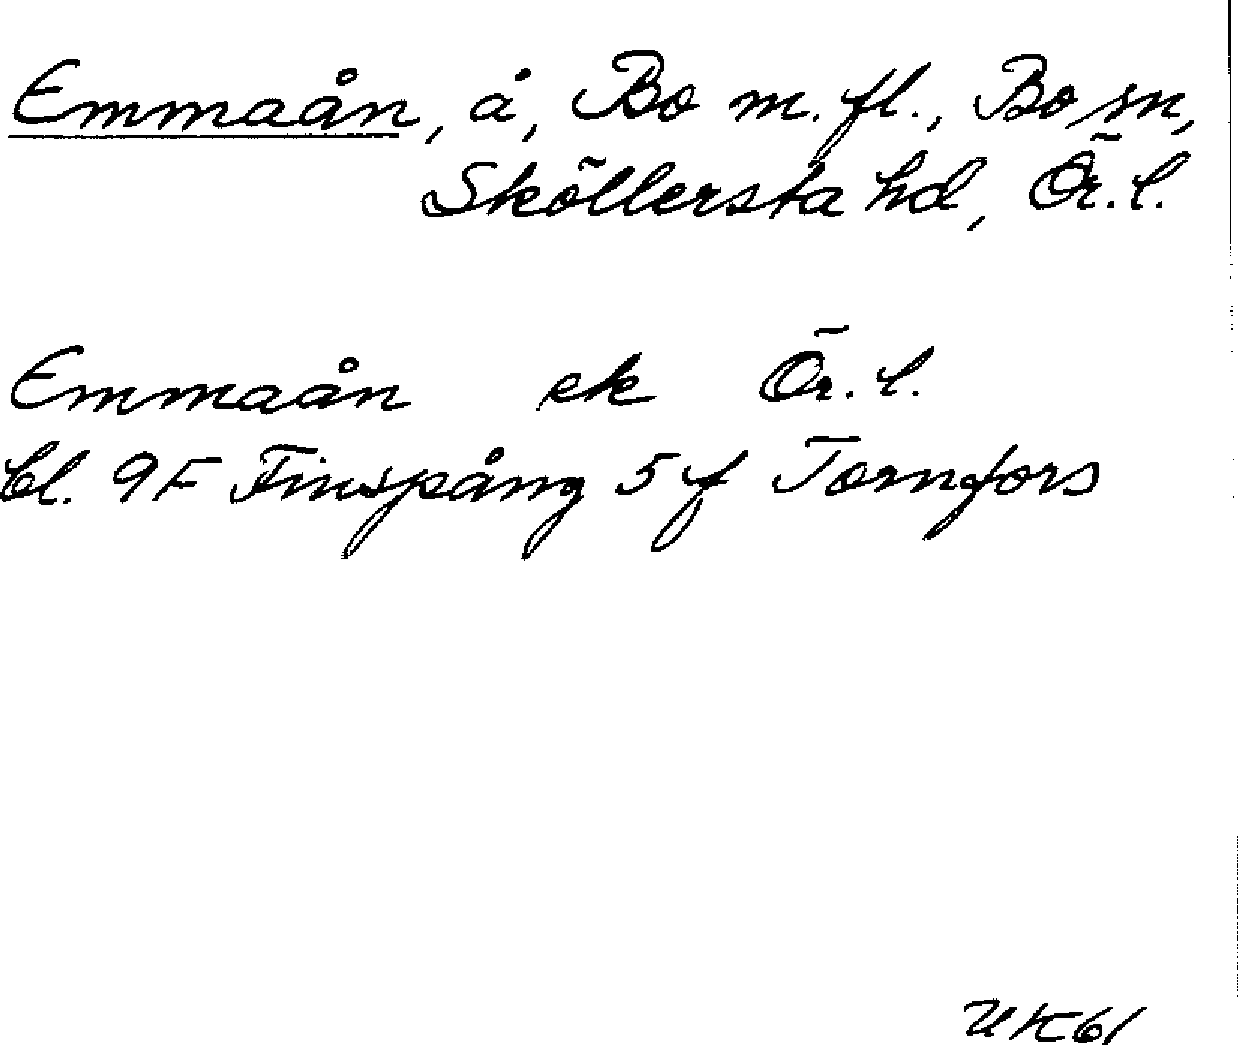 Emmaån, å, Bo m. fl., Bo sn,
Sköllersta hd, Ör. l.
Emmaån ek Ör. l.
bl. 9F Finspång 5 f Tornfors
UK61